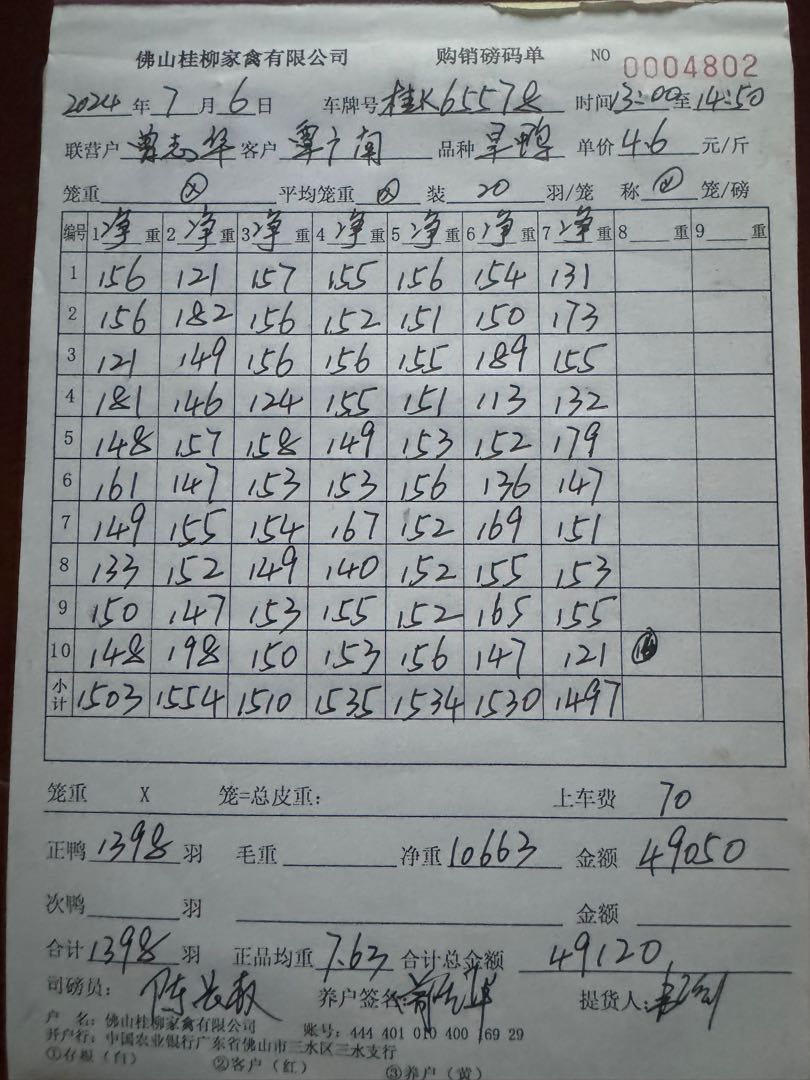 佛山桂柳家禽有限公司 购销磅码单 NO 0004802
2024 年 7 月 6 日 车牌号 桂K65578 时间 13:00 至 14:50
联营户 曾志华 客户 覃广南 品种 旱鸭 单价 4.6 元/斤
笼重 平均笼重 装 20 羽/笼 称 笼/磅
编号 1 净 重 2 净 重 3 净 重 4 净 重 5 净 重 6 净 重 7 净 重 8 重 9 重
1 156 121 157 155 156 154 131
2 156 182 156 152 151 150 173
3 121 149 156 156 155 189 155
4 181 146 124 155 151 113 132
5 148 157 158 149 153 152 179
6 161 147 153 153 156 136 147
7 149 155 154 167 152 169 151
8 133 152 149 140 152 155 153
9 150 147 153 155 152 165 155
10 148 198 150 153 156 147 121
小计 1503 1554 1510 1535 1534 1530 1497
笼重 X 笼=总皮重: 上车费 70
正鸭 1398 羽 毛重 净重 10663 金额 49050
次鸭 羽 金额
合计 1398 羽 正品均重 7.63 合计总金额 49120
司磅员: 养户签名 提货人:
户 名: 佛山桂柳家禽有限公司 账号: 444 401 010 400 169 29
开户行: 中国农业银行广东省佛山市三水区三水支行
①存根(白) ②客户(红) ③养户(黄)